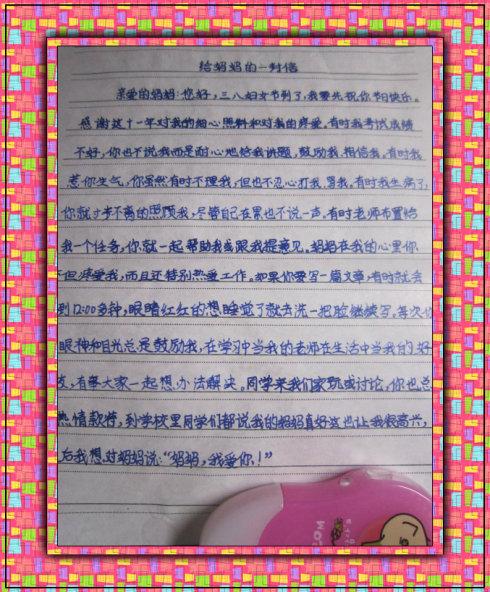 给妈妈的一封信
亲爱的妈妈:您好,三八妇女节到了,我要先祝你节日快乐。
感谢这十一年对我的细心照料和对我的疼爱。有时我考试成绩
不好,你也不说我而是耐心地给我讲题,鼓励我,相信我。有时我
惹你生气,你虽然有时不理我,但也不忍心打我,骂我。有时我生病了,
你就寸步不离的照顾我,尽管自己在累也不说一声。有时老师布置给
我一个任务,你就一起帮助我或跟我提意见。妈妈在我的心里你
但疼爱我,而且还特别热爱工作。如果你要写一篇文章,有时就会
到12:00多钟,眼睛红红的想睡觉了就去洗一把脸继续写。每次你
眼神和目光总是鼓励我,在学习中当我的老师在生活中当我的好
友,有事大家一起想办法解决。同学来我们家玩或讨论,你也总
热情款待,到学校里同学们都说我的妈妈真好这也让我很高兴,
后我想对妈妈说:“妈妈,我爱你!”